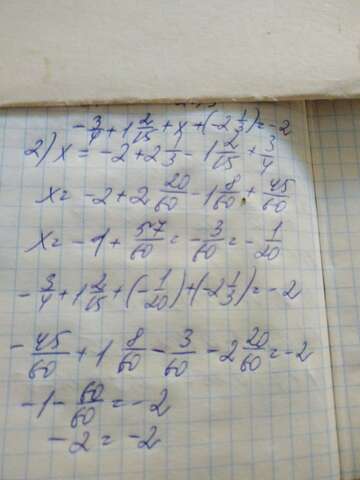 -3/4 + 1 2/15 + x + (-2 1/3) = -2
2) x = -2 + 2 1/3 - 1 2/15 + 3/4
x = -2 + 2 20/60 - 1 8/60 + 45/60
x = -1 + 57/60 = -3/60 = -1/20
-3/4 + 1 2/15 + (-1/20) + (-2 1/3) = -2
-45/60 + 1 8/60 - 3/60 - 2 20/60 = -2
-1 - 60/60 = -2
-2 = -2